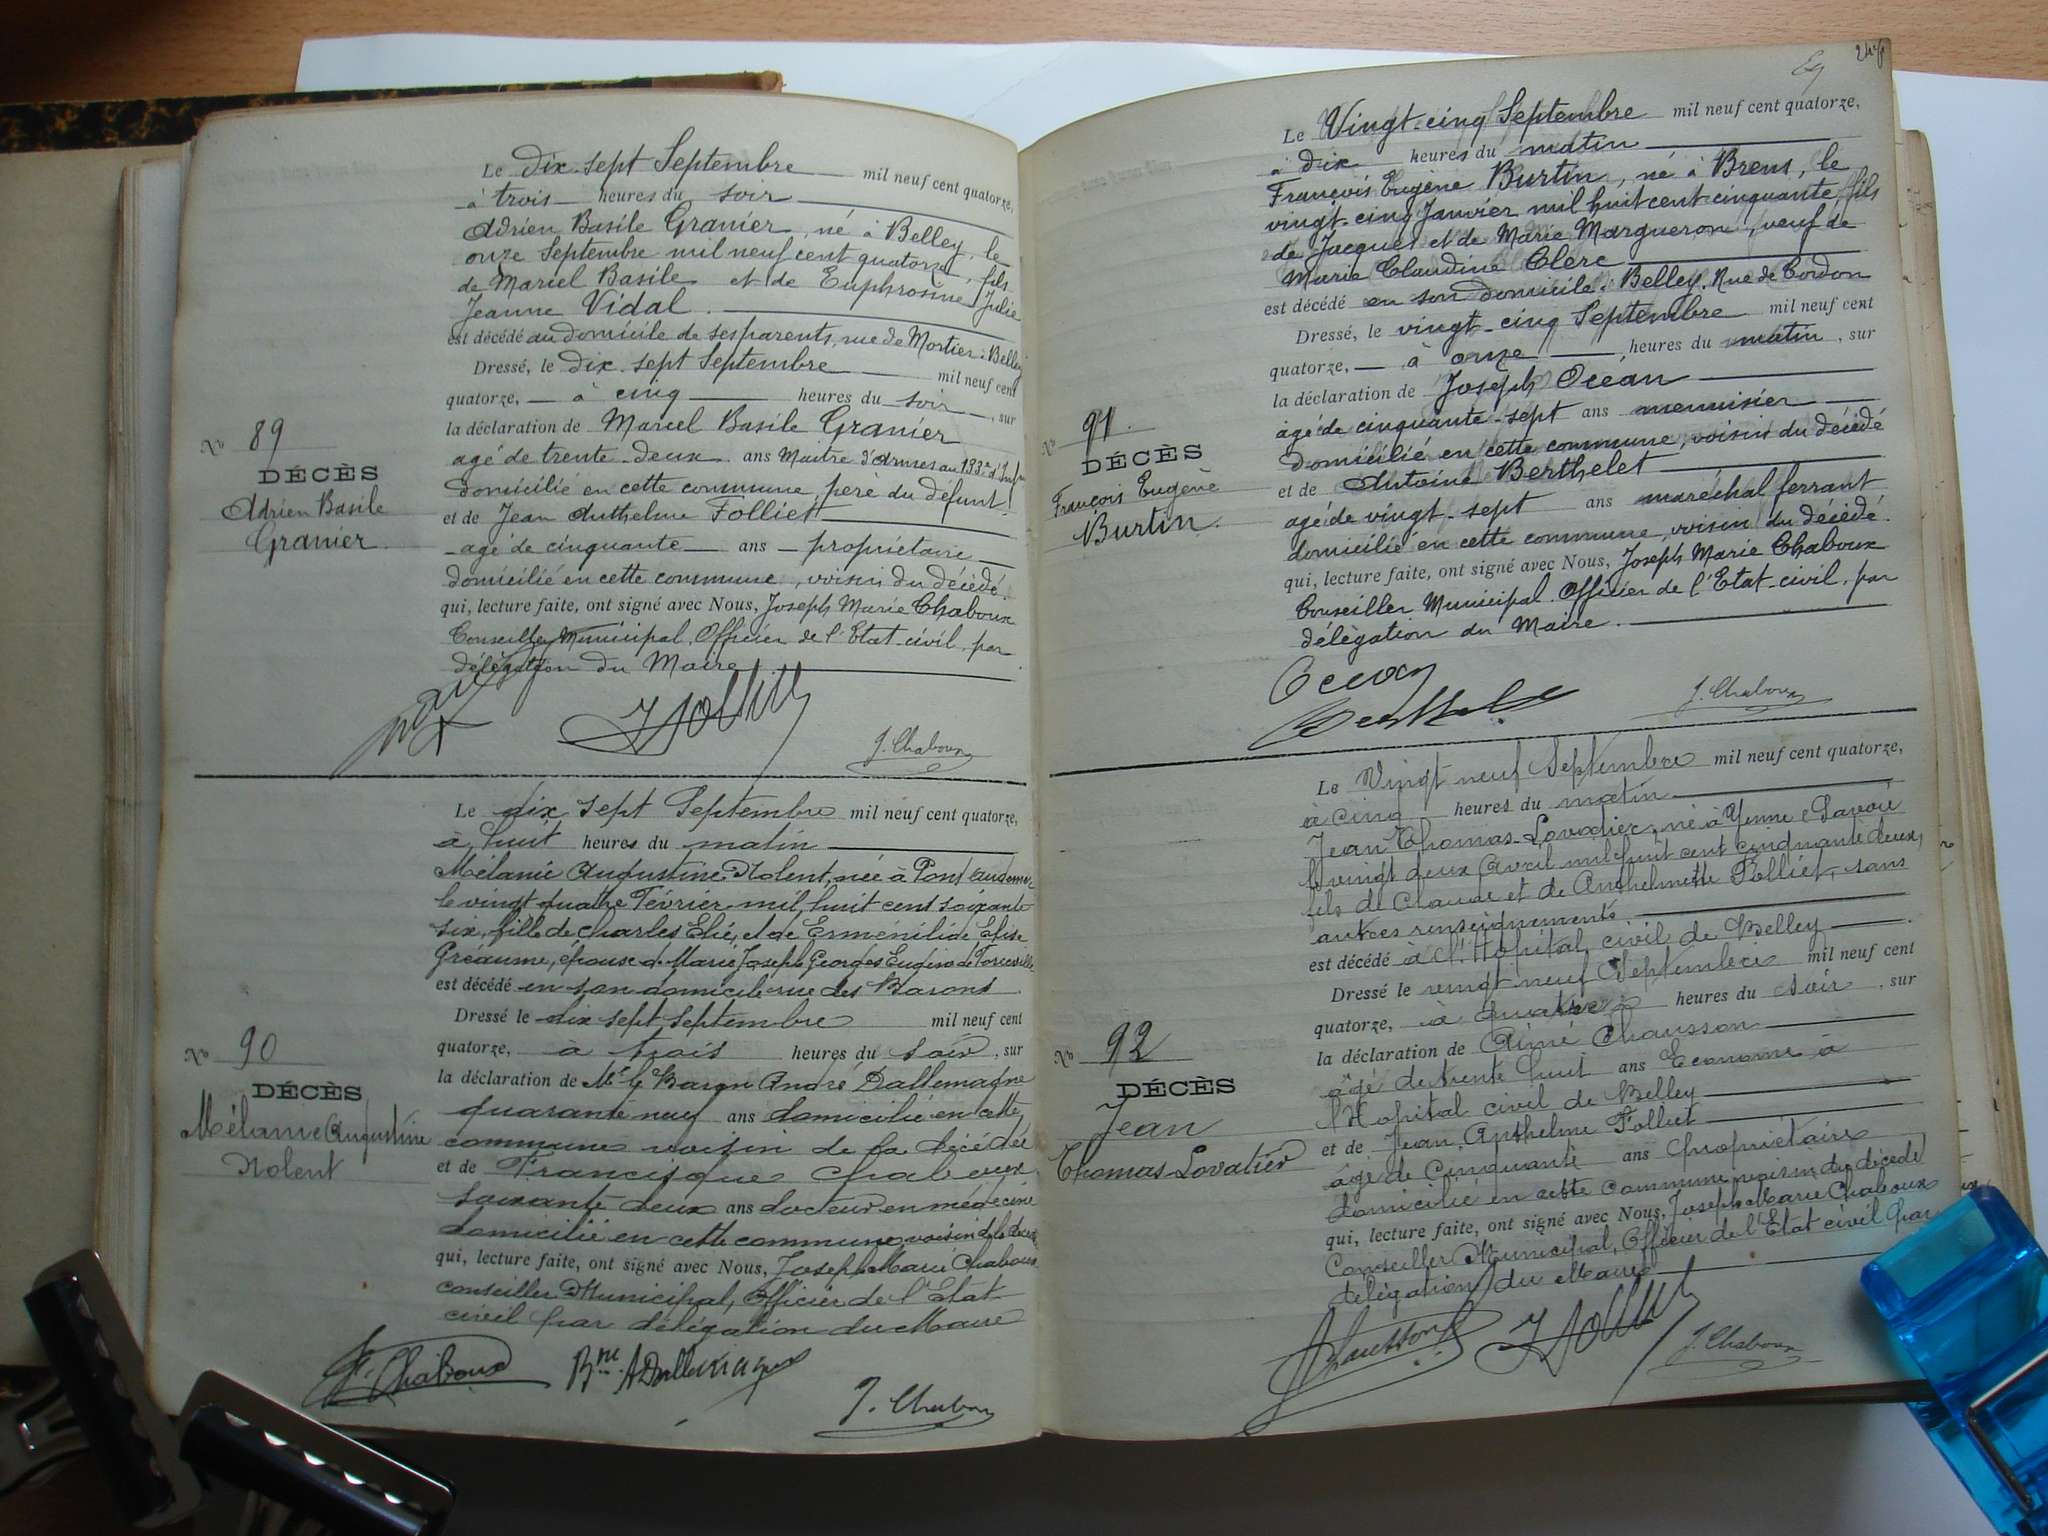 Le dix-sept Septembre mil neuf cent quatorze,
à trois heures du soir
Adrien Basile Granier, né à Belley, le
onze Septembre mil neuf cent quatorze, fils
de Marcel Basile et de Euphrosine Julie
Jeanne Vidal.
est décédé au domicile de ses parents, rue de Mortier à Belley
Dressé, le dix-sept Septembre mil neuf cent
quatorze, à cinq heures du soir, sur
la déclaration de Marcel Basile Granier
agé de trente-deux ans Maître d'Armes au 133e d'Infie
domicilié en cette commune, père du défunt
et de Jean Anthelme Folliet
agé de cinquante ans propriétaire
domicilié en cette commune, voisin du décédé.
qui, lecture faite, ont signé avec Nous, Joseph Marie Chaboux
Conseiller Municipal, Officier de l'Etat-civil, par
délégation du Maire
No 89
DÉCÈS
Adrien Basile
Granier
JFolliet
J. Chaboux
Le dix sept Septembre mil neuf cent quatorze,
à huit heures du matin
Mélanie Augustine Nolent, née à Pont Audemer
le vingt quatre Février mil huit cent soixante
six, fille de Charles Elie, et de Erménilide Elise
Gréaume, épouse de Marie Joseph Georges Eugène de
est décédé en son domicile rue des Barons
Dressé le dix sept septembre mil neuf cent
quatorze, à trois heures du soir, sur
la déclaration de Mr le Baron André Dallemagne
quarante neuf ans domicilié en cette
commune voisin de la décédée
et de Francisque Chaboux
soixante deux ans docteur en médecine
domicilié en cette commune, voisin de la décédée
qui, lecture faite, ont signé avec Nous, Joseph Marie Chaboux
conseiller Municipal, Officier de l'Etat
civil par délégation du Maire
No 90
DÉCÈS
Mélanie Augustine
Nolent
F. Chaboux Bon A Dallemagne
J. Chaboux
69
Le Vingt-cinq Septembre mil neuf cent quatorze,
à dix heures du matin
François Eugène Burtin, né à Brens, le
vingt-cinq Janvier mil huit cent cinquante, fils
de Jacques et de Marie Margueron, veuf de
Marie Claudine Clerc
est décédé en son domicile à Belley, Rue de Cordon
Dressé, le vingt-cinq Septembre mil neuf cent
quatorze, à onze heures du matin, sur
la déclaration de Joseph Océan
agé de cinquante-sept ans menuisier
domicilié en cette commune, voisin du décédé
et de Antoine Berthelet
agé de vingt-sept ans maréchal ferrant
domicilié en cette commune, voisin du décédé.
qui, lecture faite, ont signé avec Nous, Joseph Marie Chaboux
Conseiller Municipal Officier de l'Etat-civil, par
délégation du Maire.
No 91.
DÉCÈS
François Eugène
Burtin.
Ocean
Berthelet
J. Chaboux
Le Vingt neuf Septembre mil neuf cent quatorze,
à cinq heures du matin
Jean Thomas Lovatier, né à Yenne Savoie
le vingt deux Avril mil huit cent cinquante deux,
fils de Claude et de Anthelmette Polliet, sans
autres renseignements.
est décédé à l'Hopital civil de Belley
Dressé le vingt neuf Septembre mil neuf cent
quatorze, à quatre heures du soir, sur
la déclaration de Aimé Chausson
âgé de trente huit ans Econome à
l'Hopital civil de Belley
et de Jean Anthelme Folliet
âgé de Cinquante ans propriétaire
domicilié en cette commune voisin du décédé
qui, lecture faite, ont signé avec Nous, Joseph Marie Chaboux
Conseiller Municipal, Officier de l'Etat civil par
délégation du Maire
No 92
DÉCÈS
Jean
Thomas Lovatier
Chausson JFolliet
J. Chaboux